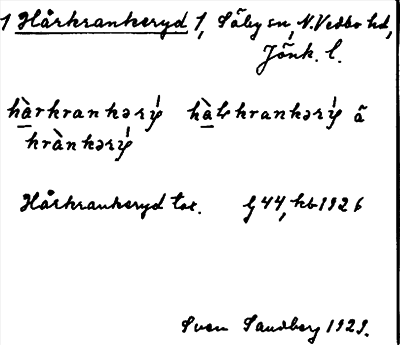 1 Hårkrankeryd 1, Säby sn, N. Vedbo hd,
Jönk. l.
hàrkrankərý hàlkrankərý å
krànkərý
Hårkrankeryd tox. G 44, kb 1926
Sven Sandberg 1929.